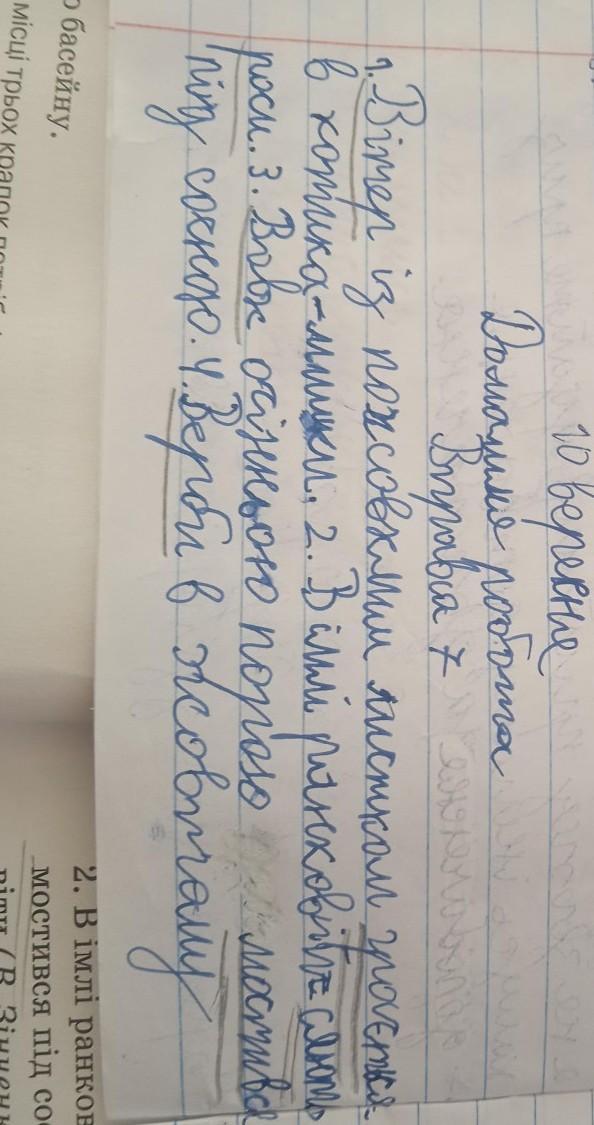 10 вересня
Домашня робота
Вправа 7
1. Вітер із пожовклим листком грається
в котика-мишки. 2. В імлі ранковій сяють
роси. 3. Вовк осінньою порою мостився
під сосною. 4. Верби в жовтому
о басейну.
місці трьох крапок
2. В імлі ранков
мостився під сос